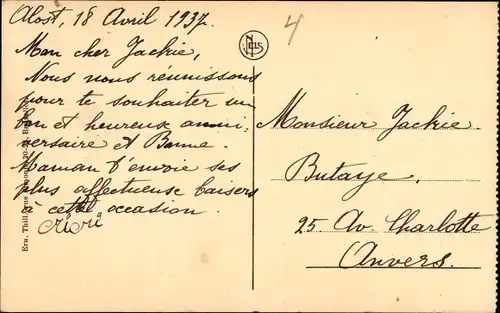 Alost, 18 Avril 1937.
Mon cher Jackie,
Nous nous réunissons
pour te souhaiter un
bon et heureux anni-
versaire et Bonne
Maman t'envoie ses
plus affectueux baisers
à cette occasion.
NELS
4
Monsieur Jackie
Butaye,
25 Av. Charlotte
Anvers.
Ern. Thill, rue